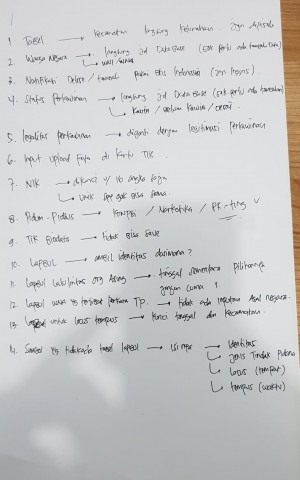 1. Tabel → kecamatan langsung kelurahan jgn dipisah
2. Warga Negara → langsung jd DataBase (gak perlu ada tambah Data)
↳ WNI / WNA
3. Notifikasi Delete / tambah pakai Bhs Indonesia (jgn Inggris)
4. Status Perkawinan → langsung jd DataBase (gak perlu ada tambah)
↳ Kawin / belum kawin / cerai
5. legalitas perkawinan → diganti dengan legitimasi perkawinan
6. Input Upload Foto di Kartu TIK
7. NIK → dikunci 16 angka saja
↳ Unik gak bisa sama
8. Pidum - Pidsus → Korupsi / Narkotika / PK-ting ✓
9. TIK Biodata → tidak bisa save
10. Lapsul → ambil identitas darimana?
11. Lapsul Lalulintas Org Asing → tinggal sementara pilihannya jangan cuma 1
12. Lapsul yg terlibat perkara TP. → tidak ada inputan Asal Negara
13. untuk locus tempus → kunci tanggal dan kecamatan
14. yg tidak ada tabel lapsul → isi nya → Identitas
↳ Jenis Tindak Pidana
↳ locus (tempat)
↳ tempus (waktu)